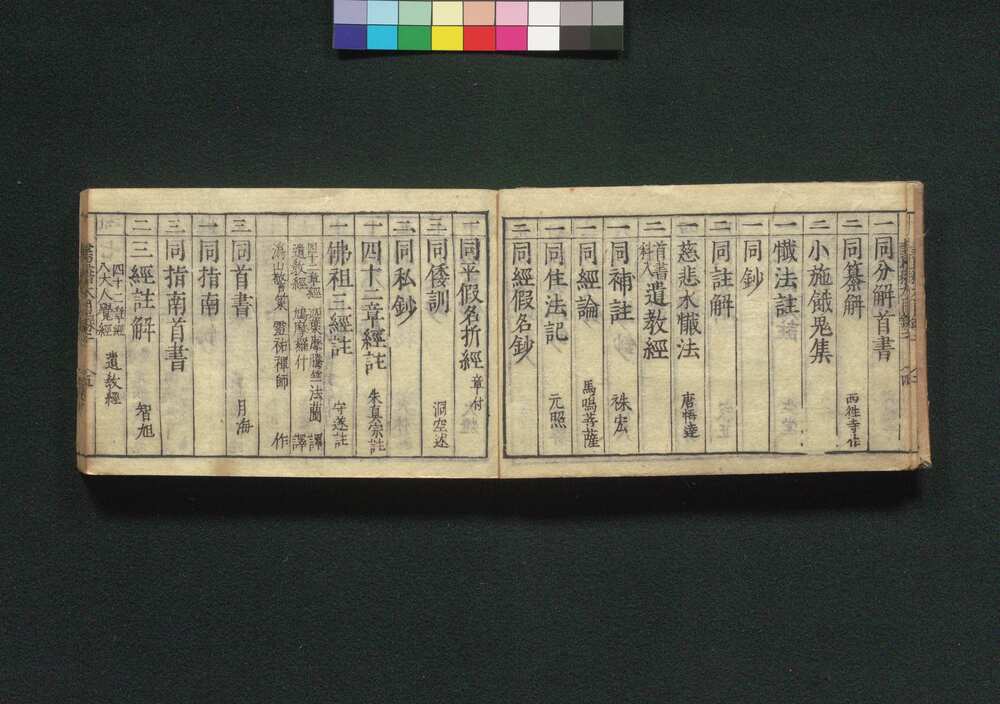 一 同分解首書
二 同纂觧 西徃寺作
二 小施餓鬼集
一 懺法註
一 同鈔
二 同註解
一 慈悲水懺法 唐悟達
二 首書科入遺教經
一 同補註 袾宏
一 同經論 馬鳴菩薩
一 同住法記 元照
二 同經假名鈔
一 同平假名折經 章付
三 同倭訓 洞空述
三 同私鈔
十 四十二章經註 朱真宗註
一 佛祖三經註 守遂註
四十二章經 迦葉摩騰竺法蘭 譯
遺教經 鳩摩羅什 譯
潙山警策 霊祐禅師 作
三 同首書 月海
一 同指南
三 同指南首書
二 三經註解 智旭
四十二章經
八大人覺經 遺教經